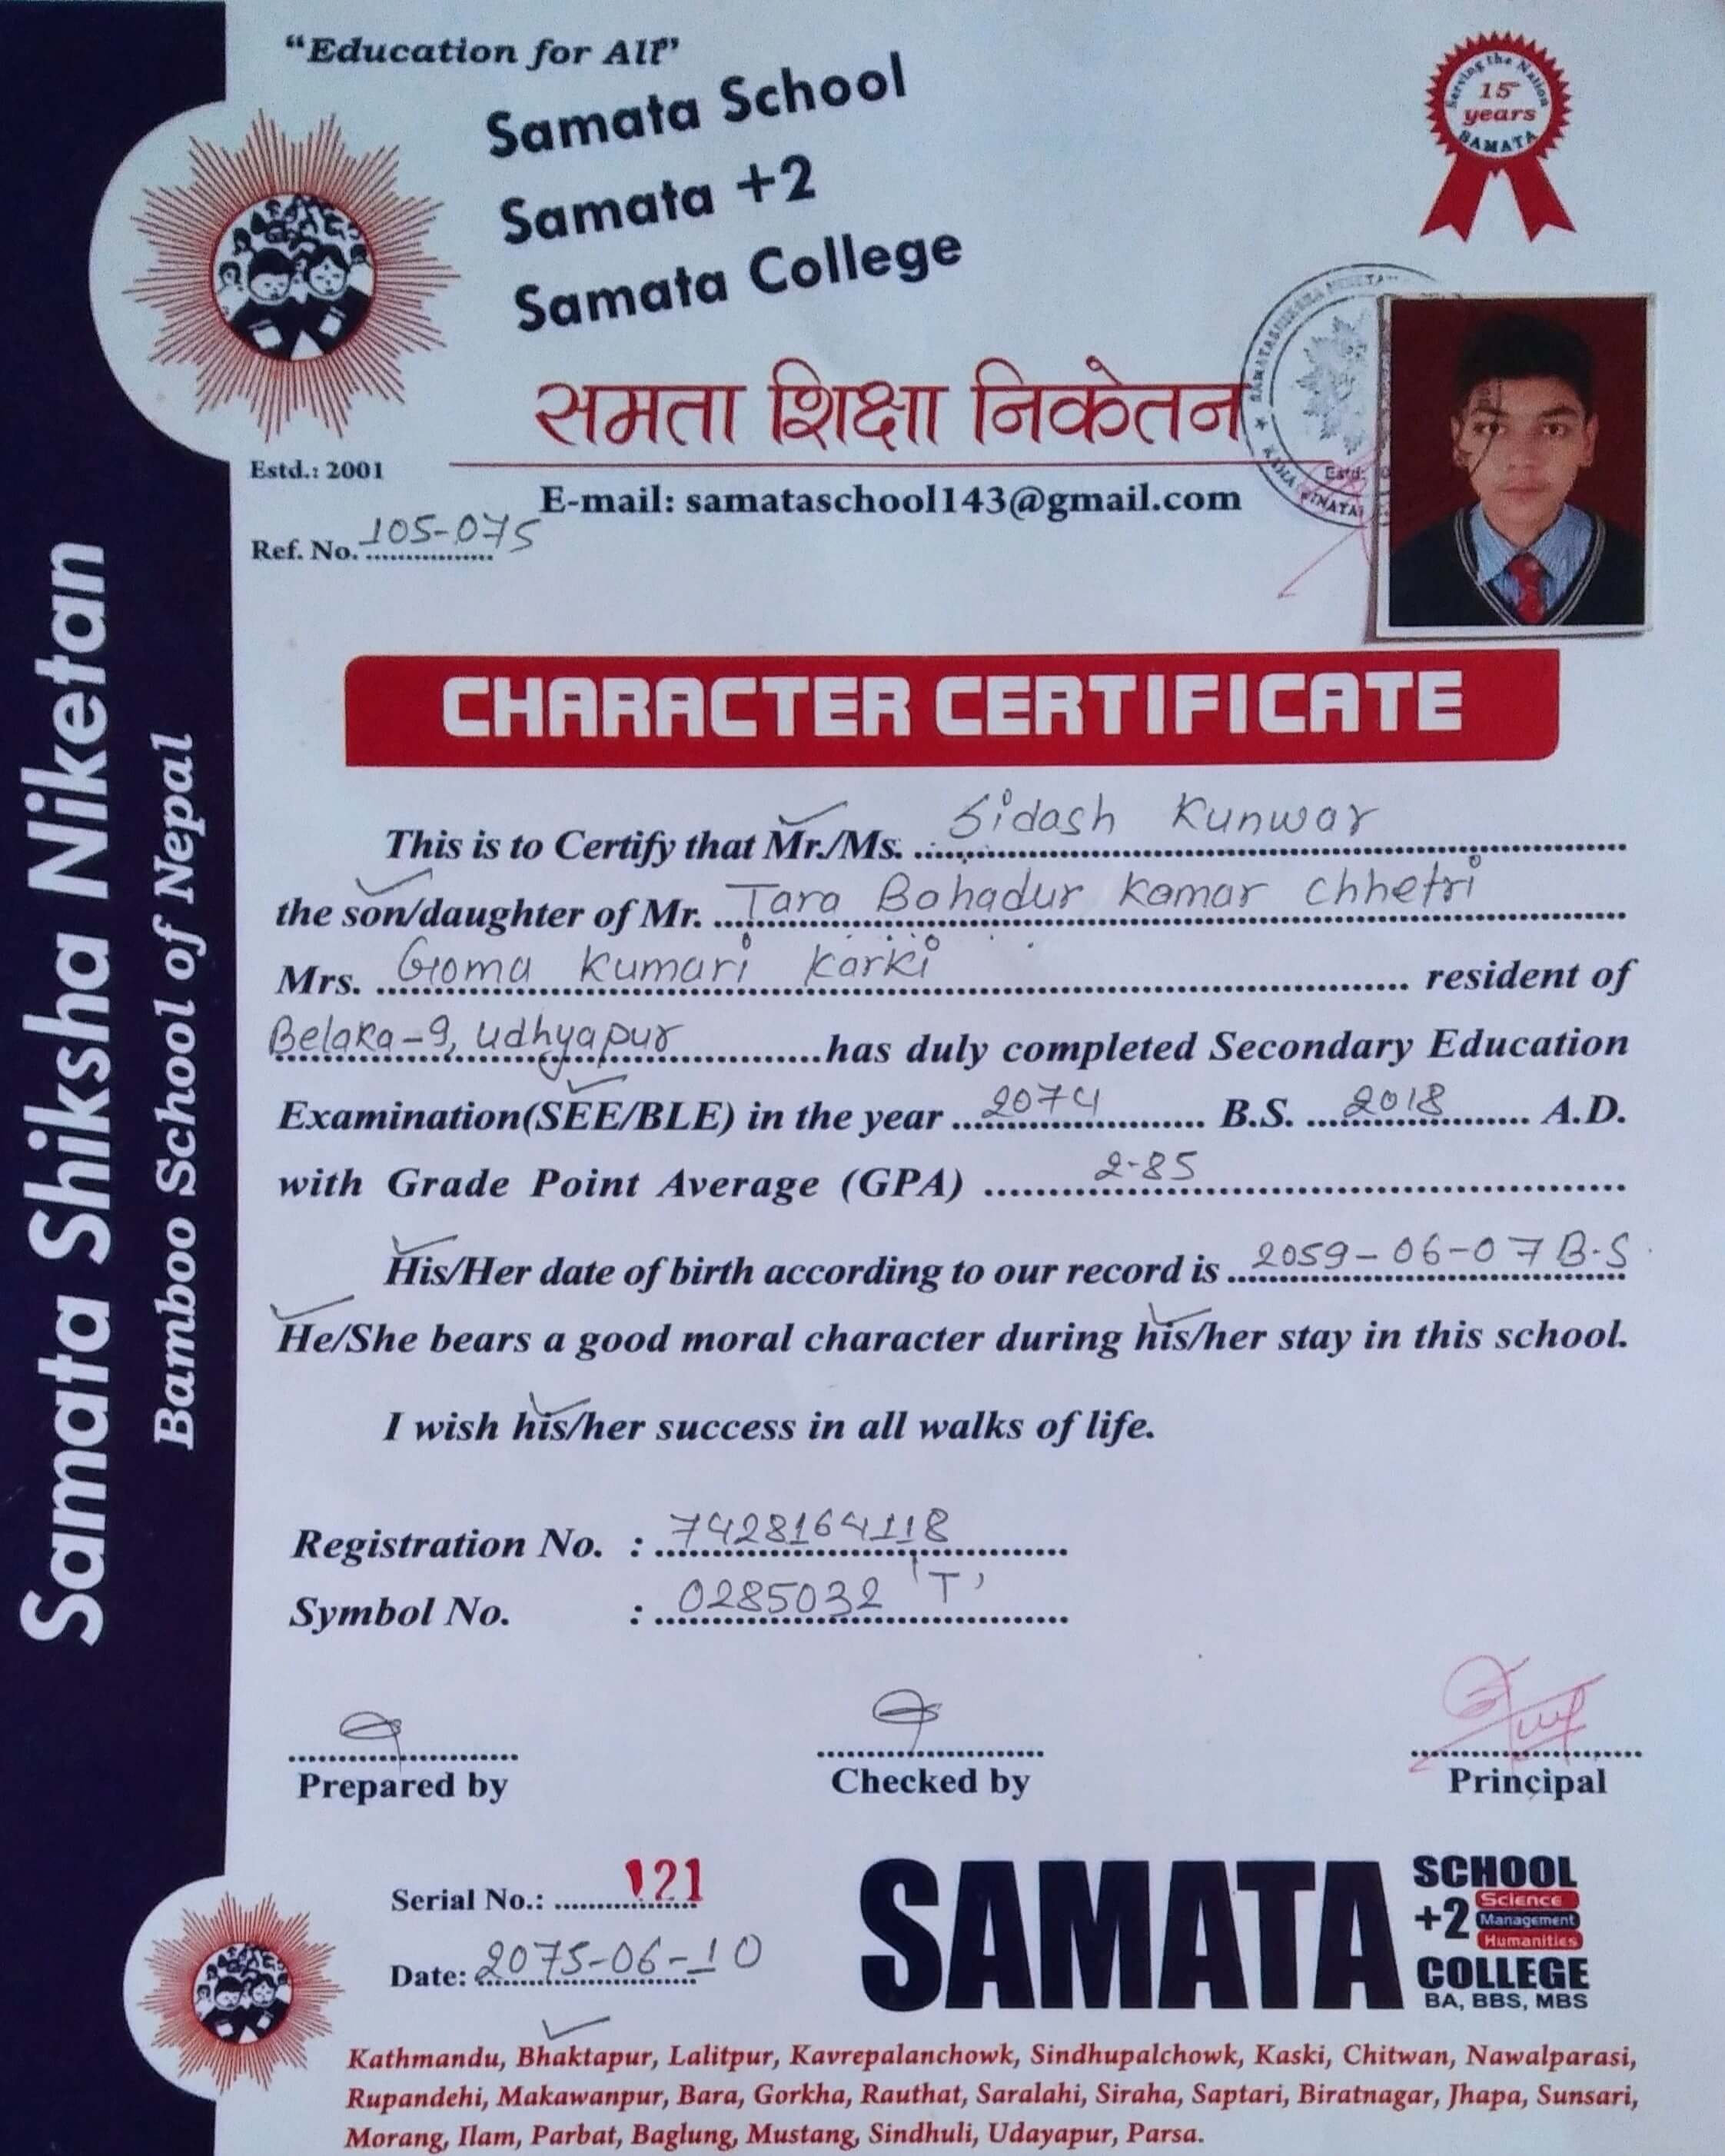 "Education for All"
Samata School
Samata +2
Samata College
Serving the Nation
15
years
SAMATA
समता शिक्षा निकेतन
Estd.: 2001
E-mail: samataschool143@gmail.com
Ref. No. 105-075
Samata Shiksha Niketan
Bamboo School of Nepal
CHARACTER CERTIFICATE
This is to Certify that Mr./Ms. Sidash Kunwar
the son/daughter of Mr. Tara Bahadur Kamar Chhetri
Mrs. Goma Kumari Karki resident of
Belaka-9, Udhyapur has duly completed Secondary Education
Examination(SEE/BLE) in the year 2074 B.S. 2018 A.D.
with Grade Point Average (GPA) 2-85
His/Her date of birth according to our record is 2059-06-07 B.S
He/She bears a good moral character during his/her stay in this school.
I wish his/her success in all walks of life.
Registration No. : 7428164118
Symbol No. : 0285032 'T'
Prepared by
Checked by
Principal
Serial No.: 121
Date: 2075-06-10
SAMATA
SCHOOL
+2 Science
Management
Humanities
COLLEGE
BA, BBS, MBS
Kathmandu, Bhaktapur, Lalitpur, Kavrepalanchowk, Sindhupalchowk, Kaski, Chitwan, Nawalparasi,
Rupandehi, Makawanpur, Bara, Gorkha, Rauthat, Saralahi, Siraha, Saptari, Biratnagar, Jhapa, Sunsari,
Morang, Ilam, Parbat, Baglung, Mustang, Sindhuli, Udayapur, Parsa.